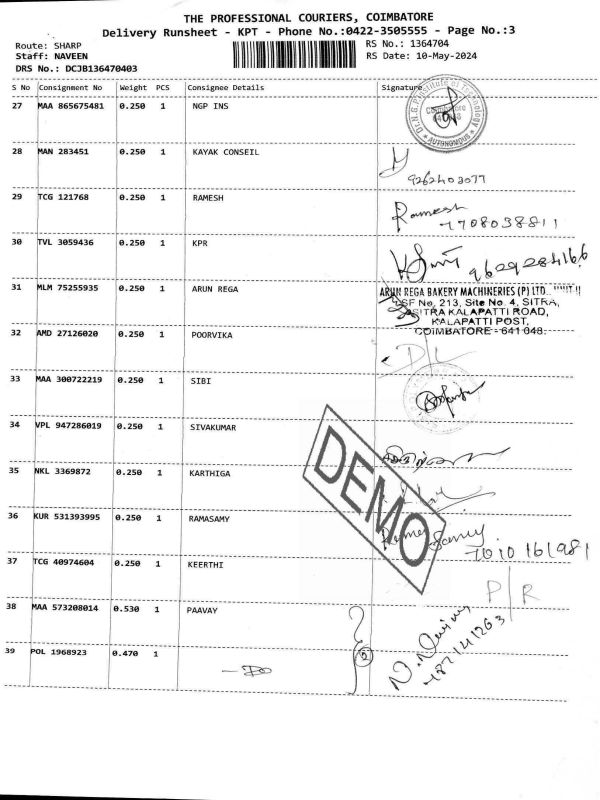 THE PROFESSIONAL COURIERS, COIMBATORE
Delivery Runsheet - KPT - Phone No.:0422-3505555 - Page No.:3
Route: SHARP RS No.: 1364704
Staff: NAVEEN RS Date: 10-May-2024
DRS No.: DCJB136470403
S No Consignment No Weight PCS Consignee Details Signature
27 MAA 865675481 0.250 1 NGP INS
Coimbatore
* AUTONOMOUS *
28 MAN 283451 0.250 1 KAYAK CONSEIL
9262402077
29 TCG 121768 0.250 1 RAMESH Ramesh
7708038811
30 TVL 3059436 0.250 1 KPR
9629284166
31 MLM 75255935 0.250 1 ARUN REGA ARUN REGA BAKERY MACHINERIES (P) LTD.
SF No. 213, Site No. 4, SITRA,
SITRA KALAPATTI ROAD,
KALAPATTI POST,
COIMBATORE - 641 048.
32 AMD 27126020 0.250 1 POORVIKA D/L
33 MAA 300722219 0.250 1 SIBI
34 VPL 947286019 0.250 1 SIVAKUMAR
35 NKL 3369872 0.250 1 KARTHIGA
DEMO
36 KUR 531393995 0.250 1 RAMASAMY
7010161981
37 TCG 40974604 0.250 1 KEERTHI P/R
38 MAA 573208014 0.530 1 PAAVAY
39 POL 1968923 0.470 1 -Do 2